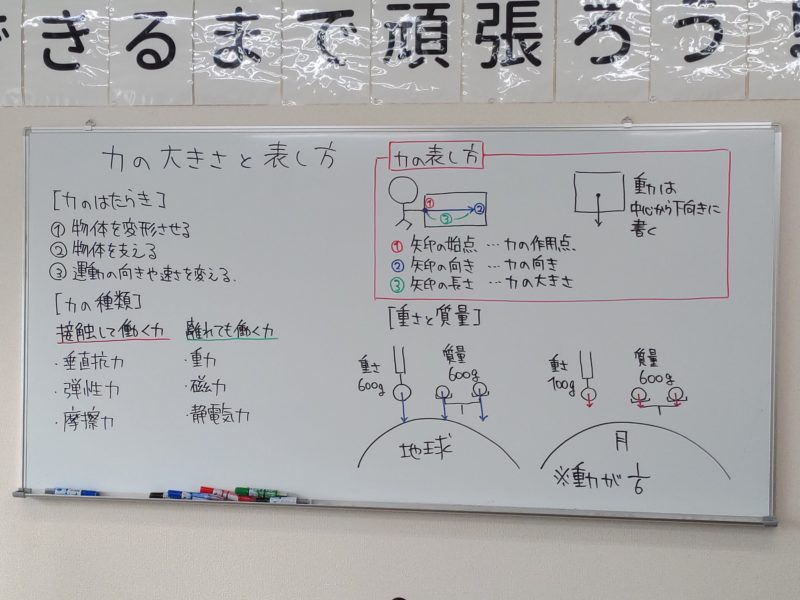 できるまで頑張ろう
力の大きさと表し方
[力のはたらき]
① 物体を変形させる
② 物体を支える
③ 運動の向きや速さを変える.
[力の種類]
接触して働く力
・垂直抗力
・弾性力
・摩擦力
離れても働く力
・重力
・磁力
・静電気力
力の表し方
① ② ③
動力は
中心から下向きに
書く
① 矢印の始点 … 力の作用点.
② 矢印の向き … 力の向き
③ 矢印の長さ … 力の大きさ
[重さと質量]
重さ
600g
質量
600g
地球
重さ
100g
質量
600g
月
※動力が 1/6